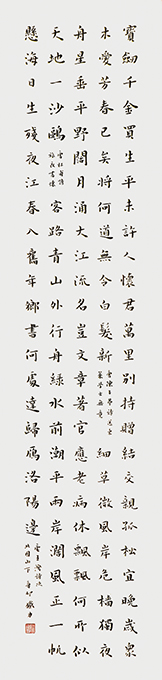 寶劍千金買生平未許人懷君萬里別持贈結交親孤松宜晚歲眾
木愛芳春已矣將何道無令白髮新
唐陳子昂詩送東
萊學士無競
細草微風岸危檣獨夜
舟星垂平野闊月湧大江流名豈文章著官應老病休飄飄何所似
天地一沙鷗
唐杜甫詩
旅夜書懷
客路青山外行舟綠水前潮平兩岸闊風正一帆
懸海日生殘夜江春入舊年鄉書何處達歸雁洛陽邊
唐王灣詩次
北固山下